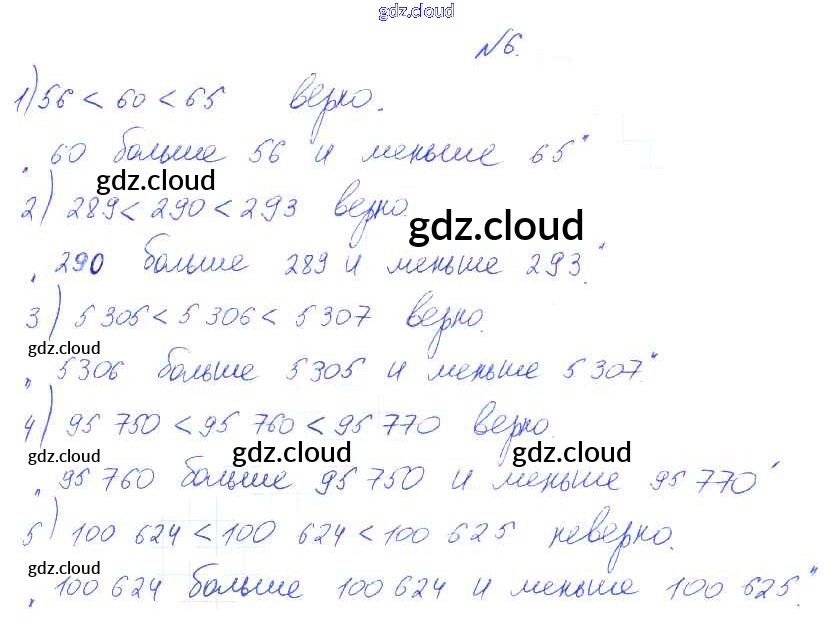 gdz.cloud
№6.
1) 56 < 60 < 65 верно.
"60 больше 56 и меньше 65"
gdz.cloud
2) 289 < 290 < 293 верно.
gdz.cloud
"290 больше 289 и меньше 293."
3) 5 305 < 5 306 < 5 307 верно.
gdz.cloud
"5306 больше 5305 и меньше 5307"
4) 95 750 < 95 760 < 95 770 верно.
gdz.cloud gdz.cloud gdz.cloud
"95 760 больше 95 750 и меньше 95 770"
5) 100 624 < 100 624 < 100 625 неверно.
gdz.cloud
"100 624 больше 100 624 и меньше 100 625."